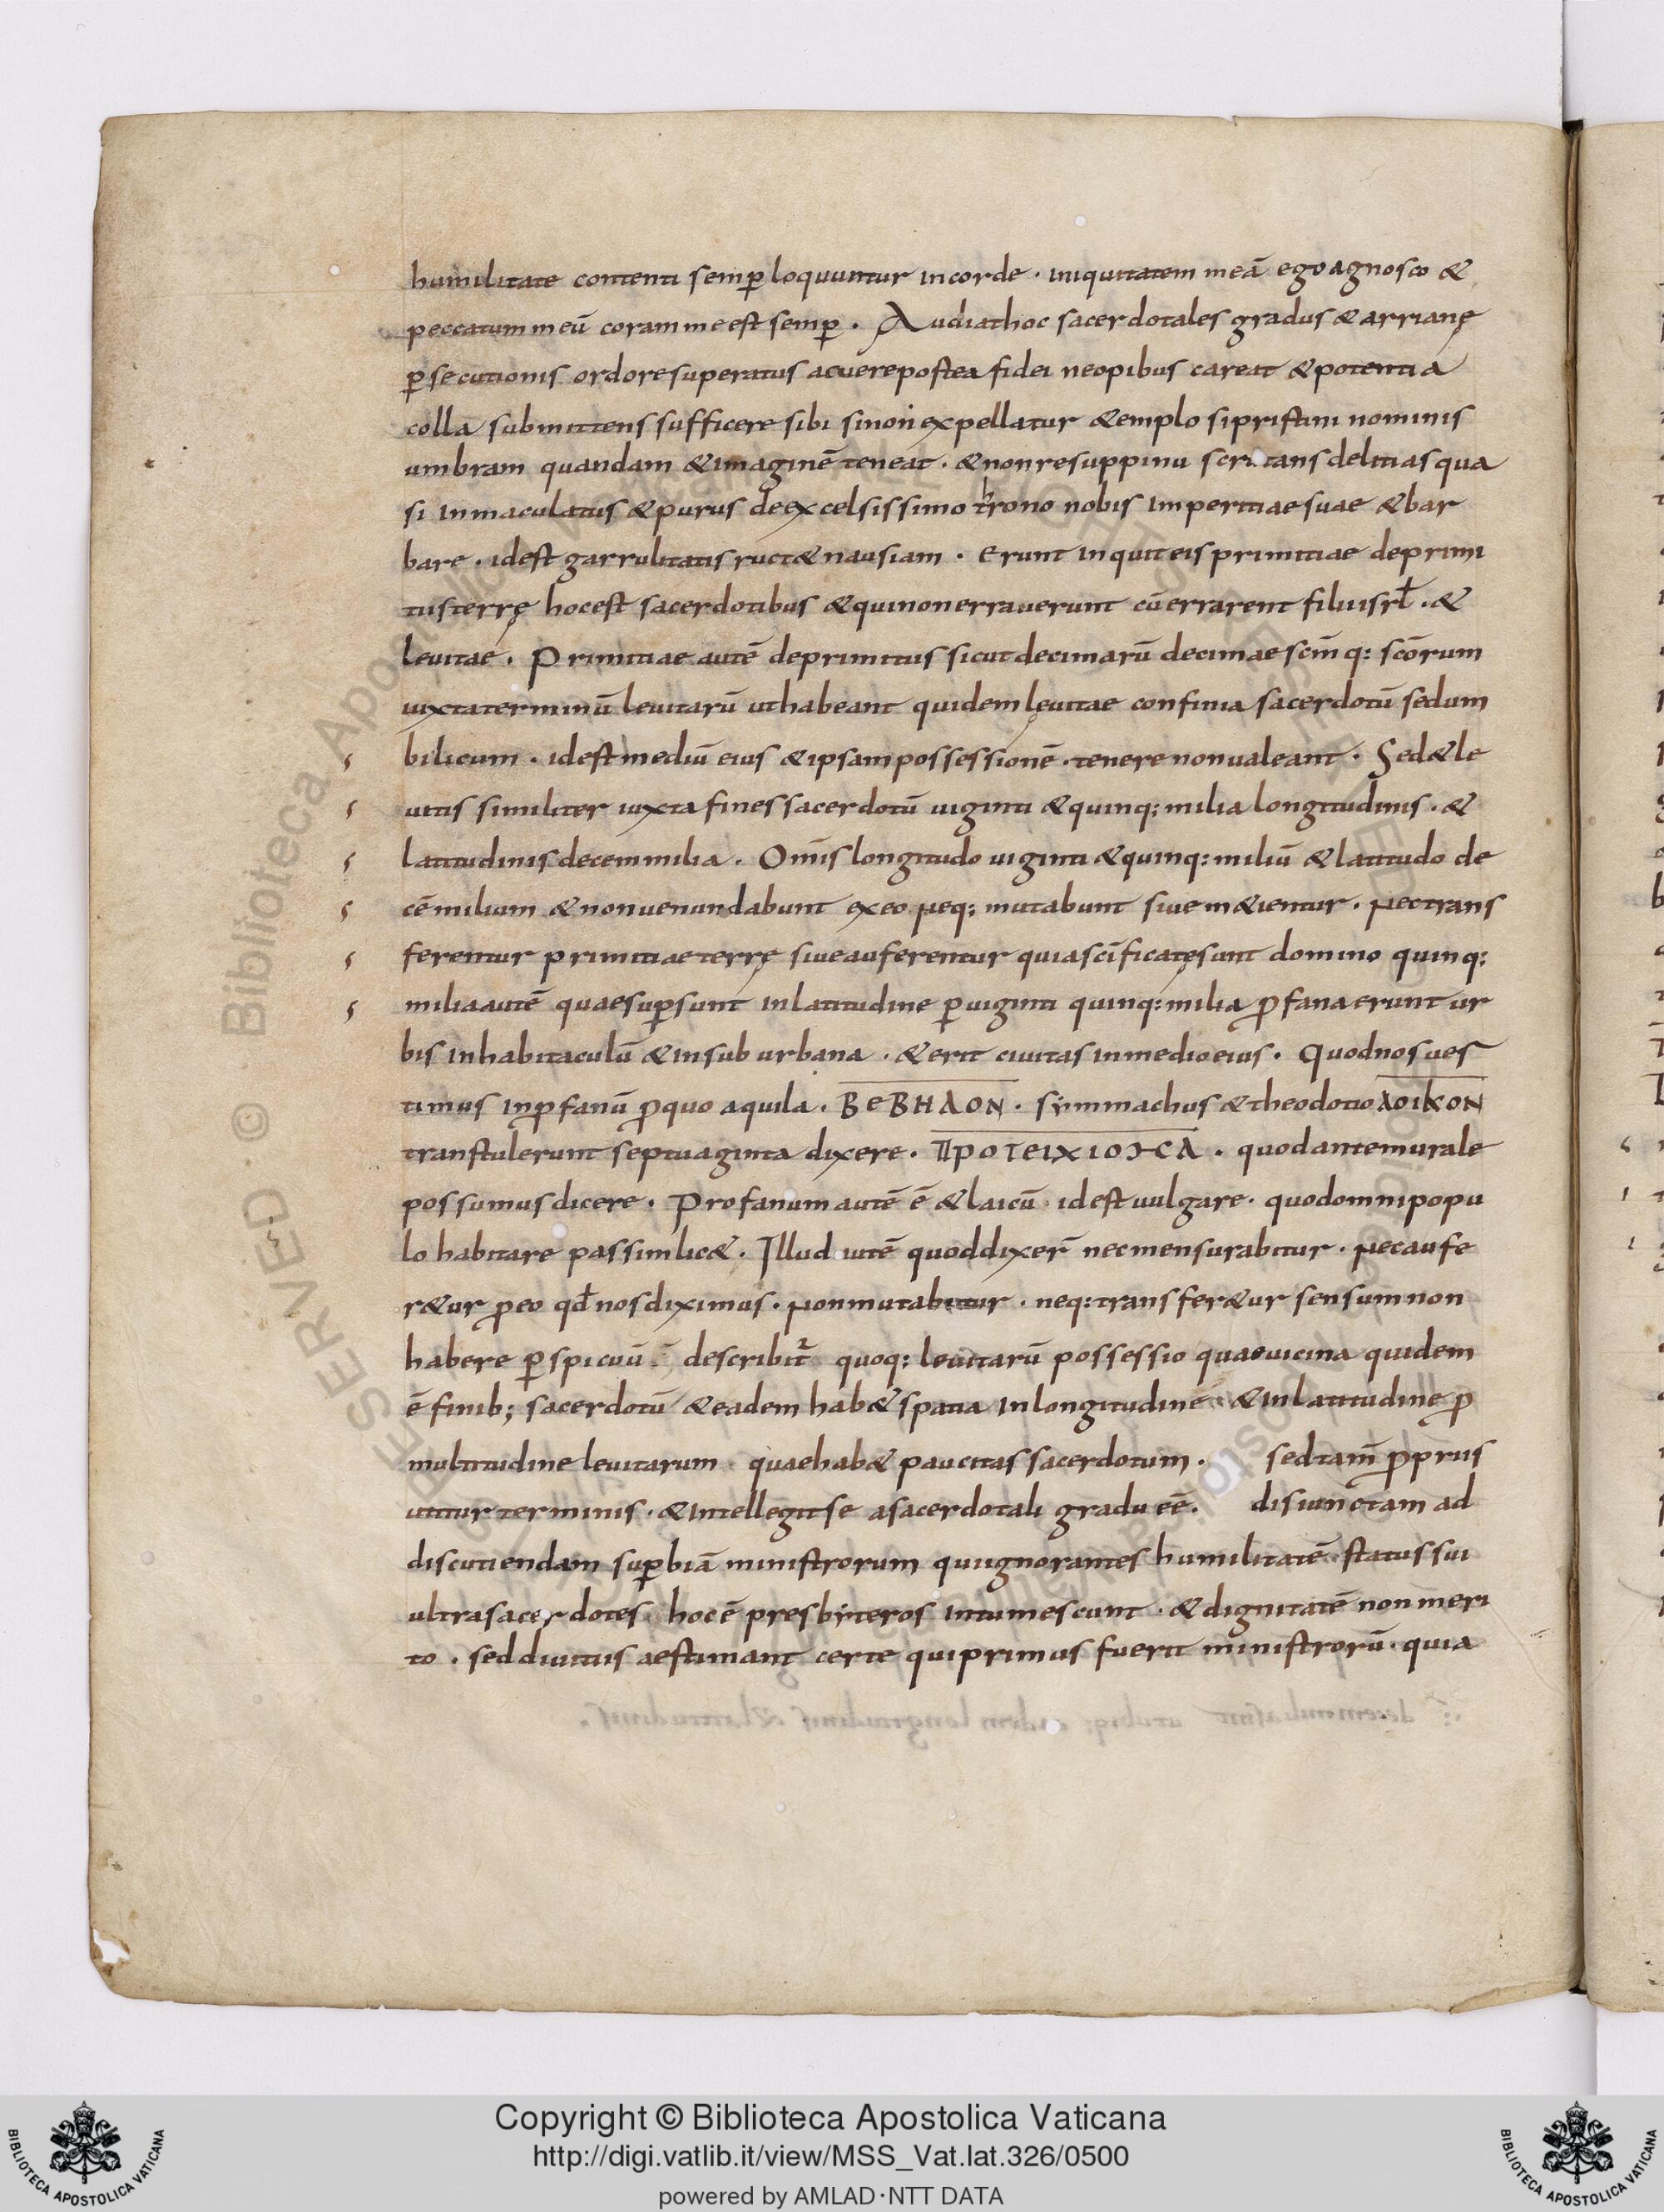 humilitate contenti semp̲ loquuntur in corde · iniquitatem meā ego agnosco &
peccatum meū coram me est semp̲ . Audiat hoc sacerdotales gradus & arrianę
p̲secutionis ordore superatus ac uere postea fidei ne opibus careat & potentia
colla submittens sufficere sibi si non expellatur & emplo si pristini nominis
umbram quandam & imaginē teneat . & non resuppinu delitias qua
si inmaculatus & purus de excelsissimo throno nobis imperitiae suae & bar
bare . id est garrulitatis ruct& nausiam . Erunt inquit eis primitiae de primi
tus terrę hoc est sacerdotibus & qui non errauerunt cū errarent filii isrł . &
leuitae . Primitiae autē de primitus sicut decimarū decimae scm̄ q: scōrum
iuxta terminū leuitarū ut habeant quidem leuitae confinia sacerdotū sed um
bilicum . id est mediū eius & ipsam possessionē . tenere non ualeant . Sed & le
uitis similiter iuxta fines sacerdotū uiginti & quinq: milia longitudinis . &
latitudinis decem milia . Om̄is longitudo uiginti & quinq: miliū & latitudo de
cē milium & non uenundabunt ex eo neq; mutabunt siue m&ientur . Nec trans
ferentur primitiae terrę siue auferentur quia scīficatę sunt domino quinq:
milia autē quae sup̲sunt in latitudine p̲ uiginti quinq: milia ꝓfana erunt ur
bis in habitaculū & in suburbana . & erit ciuitas in medio eius . Quod nos ues
timus in ꝓfanū ꝓ quo aquila . ΒΕΒΗΛΟΝ . symmachus & theodotio ΛΟΙΚΟΝ
transtulerunt septuaginta dixere . ΠΡΟΤΕΙΧΙΟΗCΑ . quod antemurale
possumus dicere . Profanum autē ē & laicū . id est uulgare . quod omni popu
lo habitare passim lic& . Illud utē quod dixer̄ nec mensurabitur . Nec aufe
r&ur ꝓ eo qđ nos diximus . Non mutabitur . neq: transfer&ur sensum non
habere p̲spicuū describit̄ quoq: leuitarū possessio quae uicina quidem
ē finib; sacerdotū & eadem hab& spatia in longitudinē & in latitudinę ꝓ
multitudine leuitarum . quae hab& paucitas sacerdotum . sed tam̄ ꝓpriis
utitur terminis . & intellegit se a sacerdotali gradu eē . disiunctam ad
discutiendam sup̲biā ministrorum qui ignorantes humilitatē status sui
ultra sacerdotes . hoc ē presbiteros intumescunt . & dignitatē non meri
to . sed diuitiis aestimant certe qui primus fuerit ministrorū . quia
Copyright © Biblioteca Apostolica Vaticana
http://digi.vatlib.it/view/MSS_Vat.lat.326/0500
powered by AMLAD·NTT DATA
BIBLIOTECA APOSTOLICA VATICANA
BIBLIOTECA APOSTOLICA VATICANA